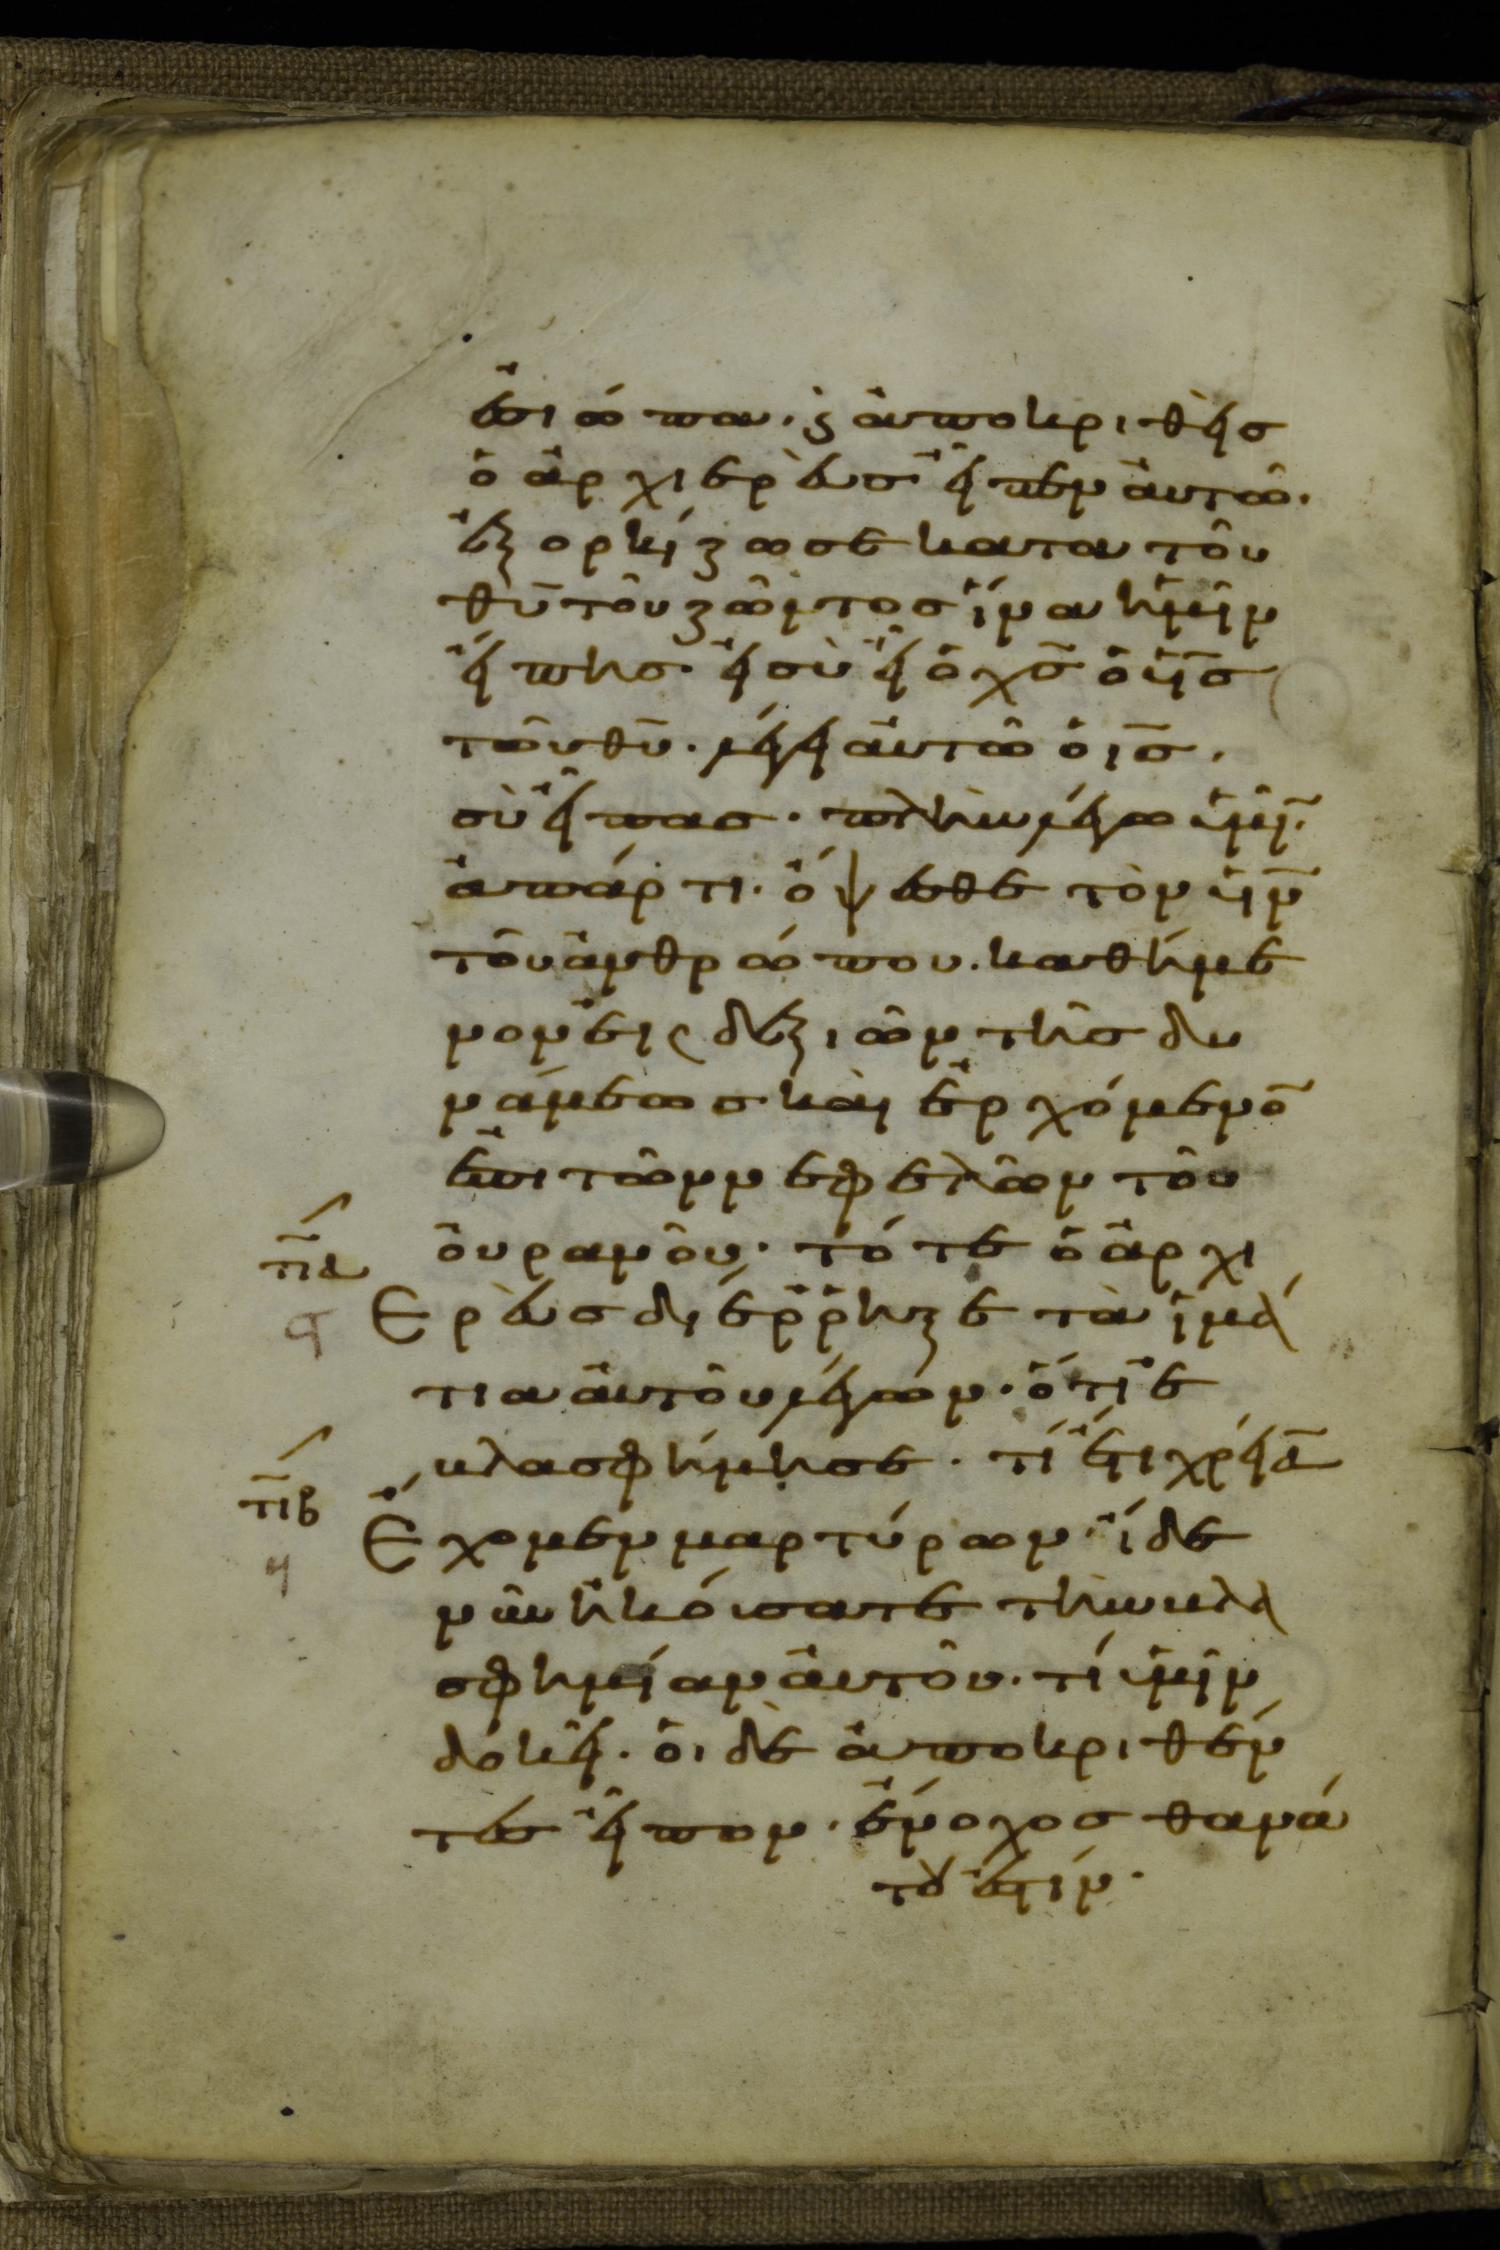 ἐσιώπα. ϗ ἀποκριθεὶσ
ὁ ἀρχιερεὺσ εἶπεν αὐτῶ.
ἐξορκίζω σε κατα τοῦ
θῡ τοῦ ζῶντοσ ἵνα ἡμῖν
εἴπησ. εἰ σὺ εἶ ὁ χσ̄ ὁ υἱσ̄
τοῦ θῡ. λέγει αὐτῶ ὁ ισ̄.
σὺ εἶπασ. πλὴν λέγω ὑμῖ̄.
ἀπάρτι. ὄψεσθε τὸν υἱν̄
τοῦ ἀνθρώπου. καθήμε
νον ἐις δεξιῶν τῆσ δυ
νάμεωσ καὶ ἐρχόμενο̄
ἐπι τῶν νεφελῶν τοῦ
οὐρανοῦ. τότε ὁ ἀρχι
π̄α
Ερεὺσ διέῤῥηξε τὰ ἱμά
τια αὐτοῦ λέγων. ὅτι ἐ
βλασφήμησε. τί ἔτι χρείᾱ
π̄β
Ἔχομεν μαρτύρων. ἴδε
νῦν ἠκόυσατε τὴν βλα
σφημίαν αὐτοῦ. τί ὑμῖν
δοκεῖ. ὁι δὲ ἀποκριθέν
τεσ εἶπον. ἔνοχοσ θανά
του ἐστίν.